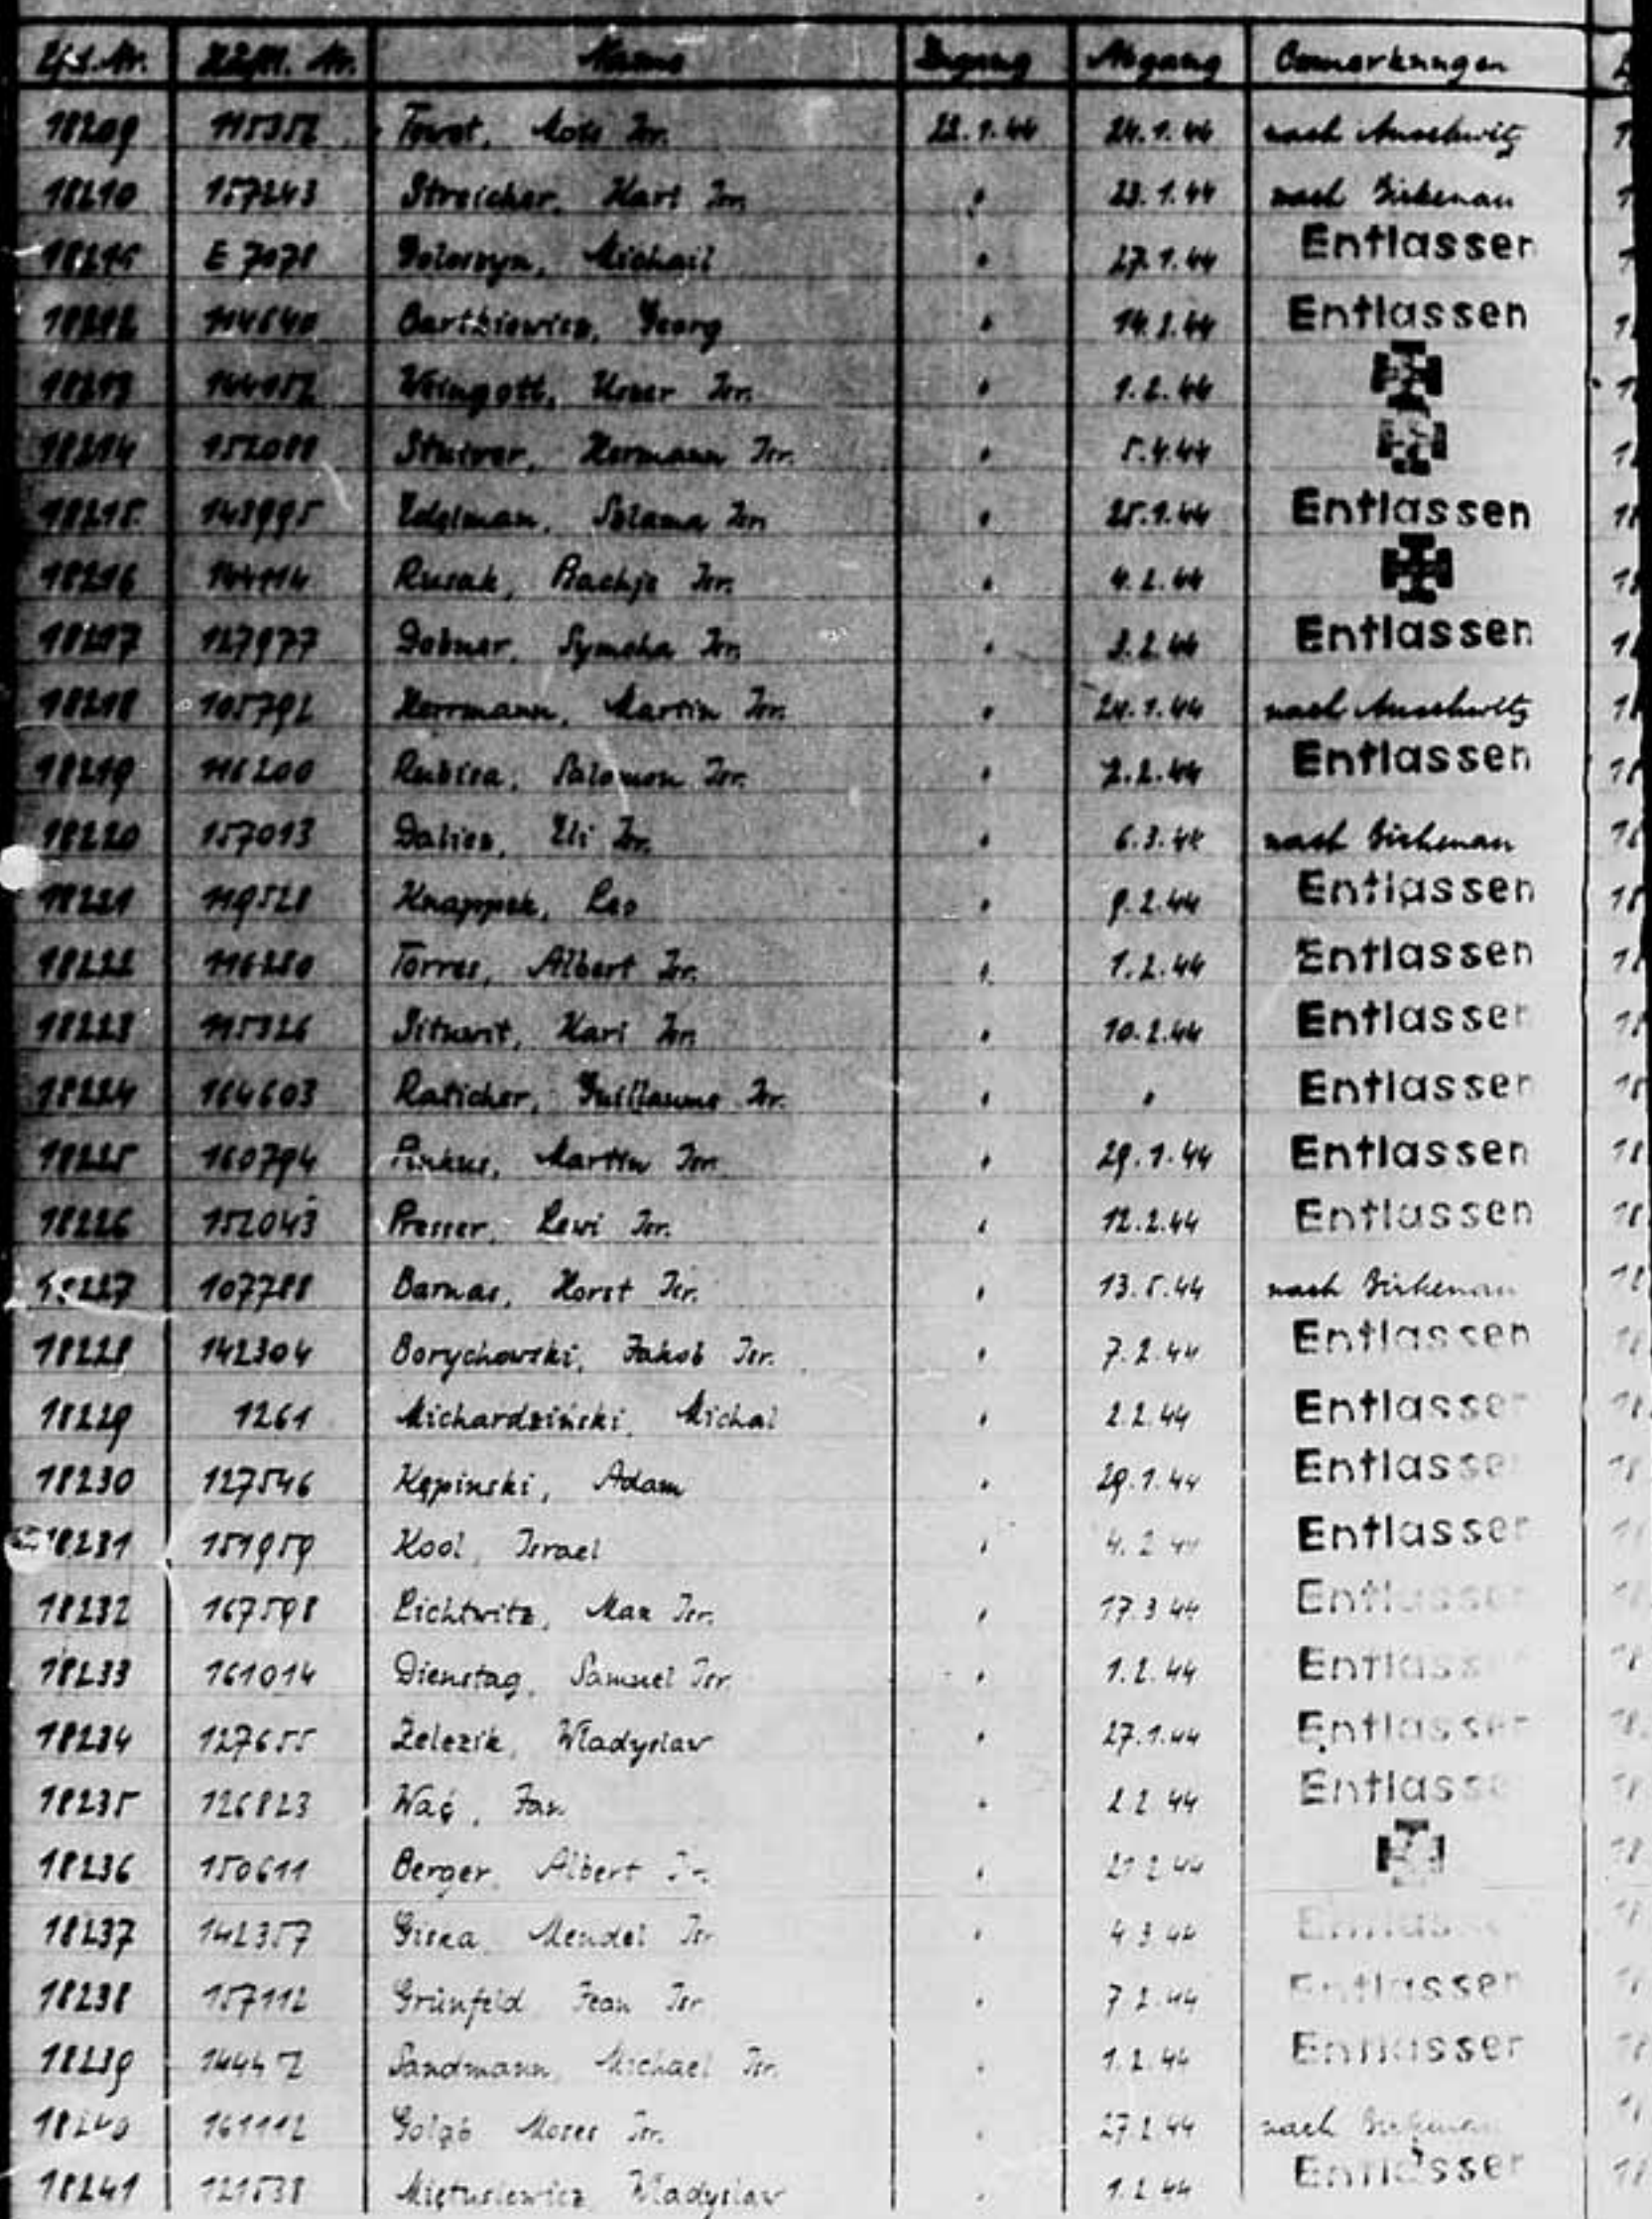 Lfd.Nr. Häftl. Nr. Name Zugang Abgang Bemerkungen
18209 115352 Mois Isr. 22.1.44 24.1.44 nach Auschwitz
18210 157243 Streicher, Karl Isr. " 23.1.44 nach Birkenau
18211 E 7078 Michail " 27.1.44 Entlassen
18212 104640 Bartkiewicz, Georg " 14.2.44 Entlassen
18213 144152 Weingott, Isr. " 1.2.44
18214 152088 Stuiver, Hermann Isr. " 5.4.44
18215 143995 Edelman, Szlama Isr. " 25.1.44 Entlassen
18216 144114 Rusak, Isr. " 4.2.44
18217 127977 Dobner, Symcha Isr. " 2.2.44 Entlassen
18218 105792 Herrmann, Martin Isr. " 24.1.44 nach Auschwitz
18219 116200 Rubisa, Salomon Isr. " 2.2.44 Entlassen
18220 157013 Eli Isr. " 6.3.44 nach Birkenau
18221 119528 Knappek, Leo " 9.2.44 Entlassen
18222 116280 Torres, Albert Isr. " 1.2.44 Entlassen
18223 115326 Karl Isr. " 10.2.44 Entlassen
18224 164603 Raticher, Guillaume Isr. " " Entlassen
18225 160794 Pinkus, Martin Isr. " 29.1.44 Entlassen
18226 152043 Presser, Lewi Isr. " 12.2.44 Entlassen
18227 107788 Barnas, Horst Isr. " 13.5.44 nach Birkenau
18228 142304 Borychowski, Jakob Isr. " 7.2.44 Entlassen
18229 1261 Michardziński, Michal " 2.2.44 Entlassen
18230 127546 Kępinski, Adam " 29.1.44 Entlassen
18231 151959 Kool, Israel " 4.2.44 Entlassen
18232 167598 Lichtwitz, Max Isr. " 17.3.44 Entlassen
18233 161014 Dienstag, Samuel Isr. " 1.2.44 Entlassen
18234 127655 Zelezik, Władyslaw " 27.1.44 Entlassen
18235 126823 Jan " 2.2.44 Entlassen
18236 150611 Berger, Albert Isr. " 21.2.44
18237 142357 Mendel Isr. " 4.3.44 Entlassen
18238 157112 Grünfeld, Jean Isr. " 7.2.44 Entlassen
18239 Sandmann, Michael Isr. " 1.2.44 Entlassen
18240 161112 Gołąb, Moses Isr. " 27.2.44 nach Birkenau
18241 121538 Miętusiewicz, Władyslaw " 1.2.44 Entlassen